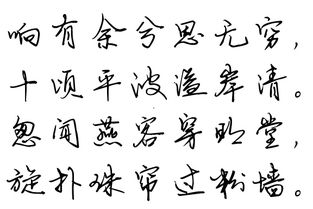 响有余兮思无穷，
十顷平波溢岸清。
忽闻燕客穿明堂，
旋扑珠帘过粉墙。